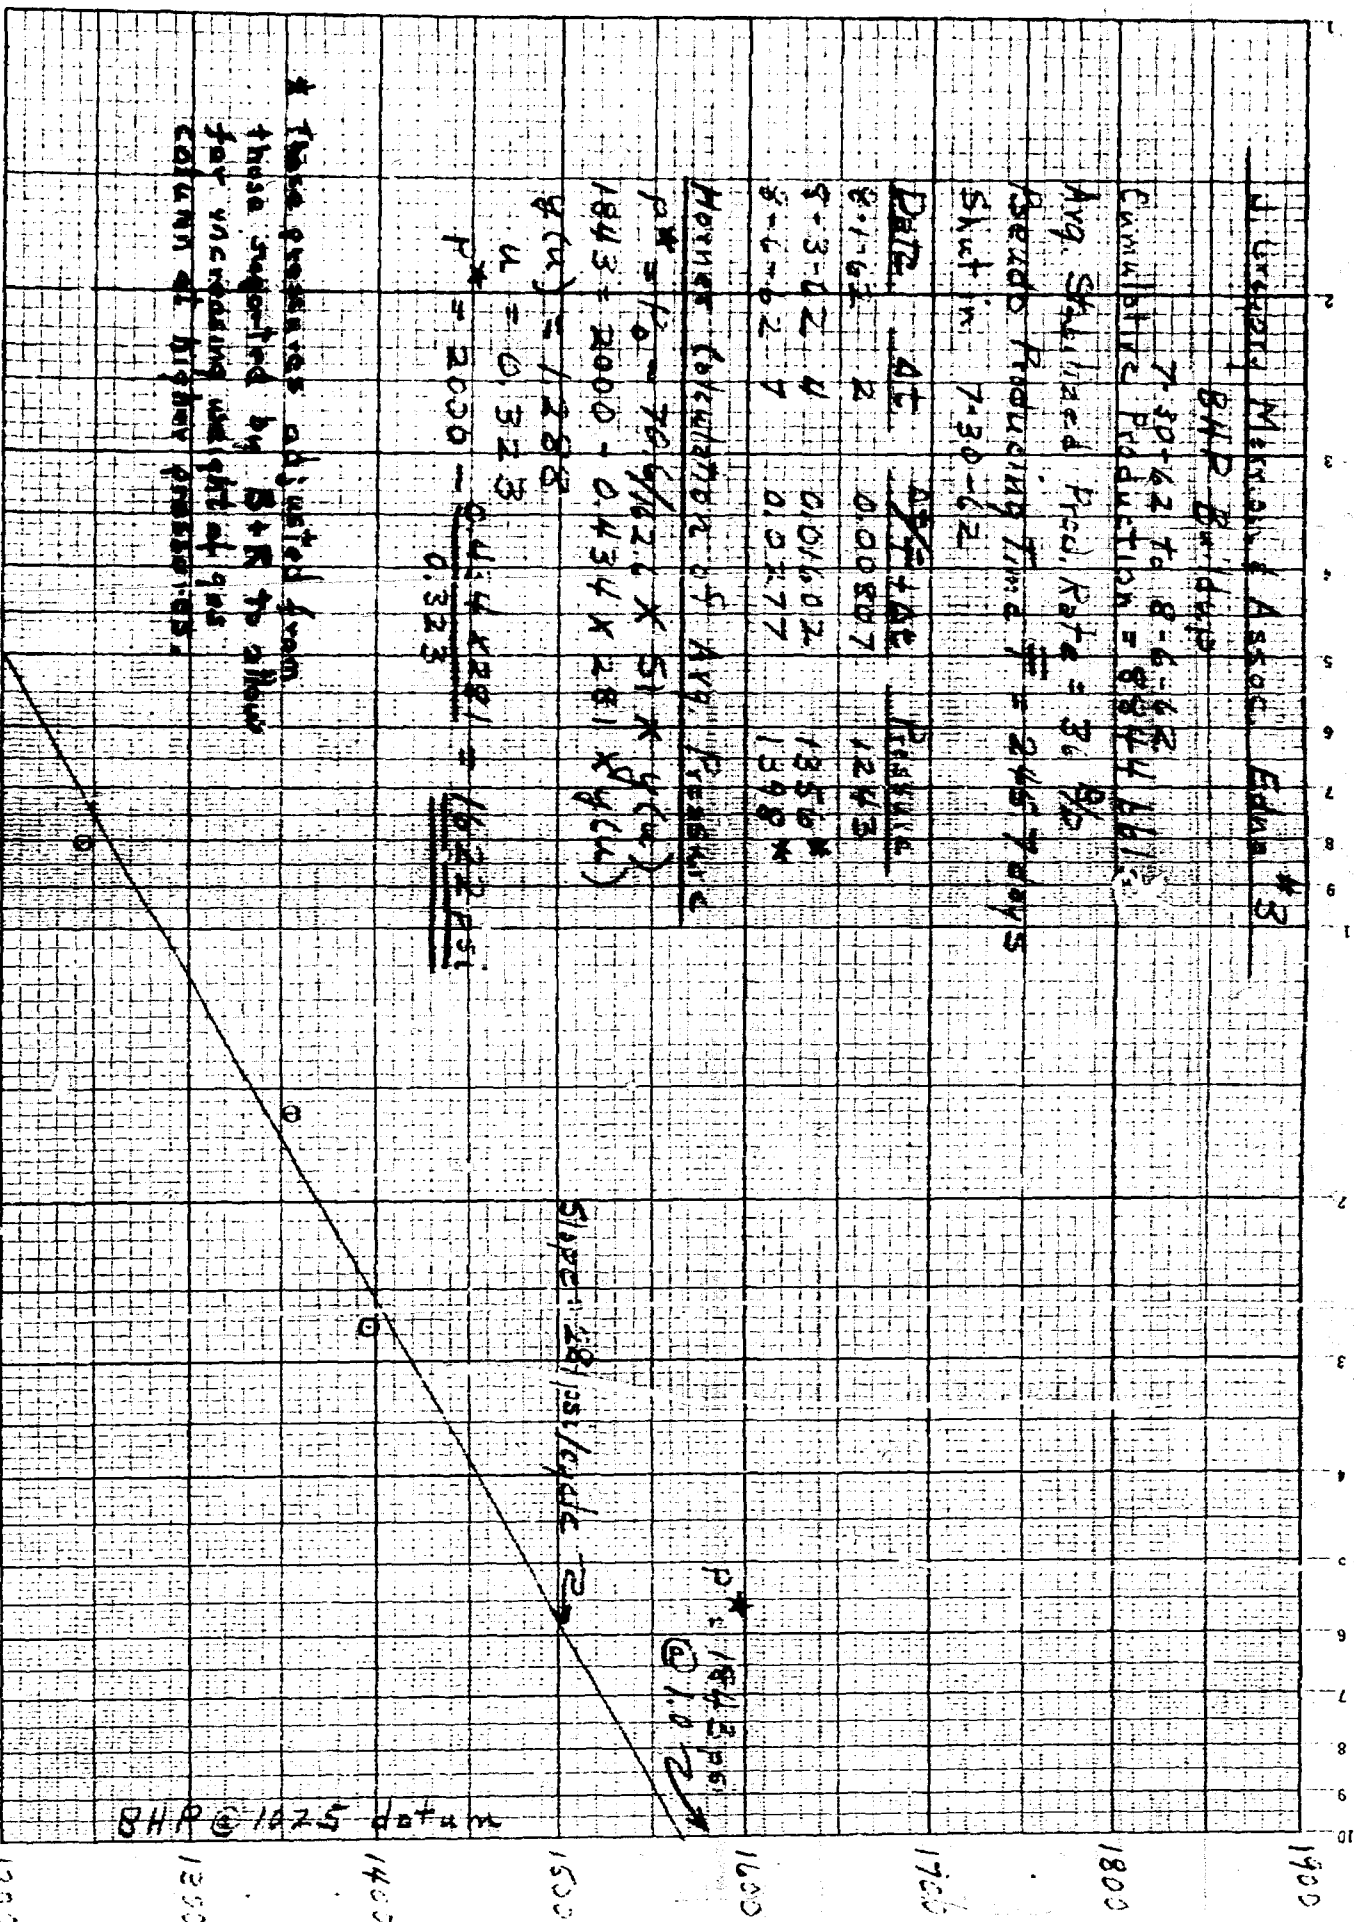 J. Gregory Merrion & Assoc. Edna #3
BHP Buildup
7-30-62 to 8-6-62
Cumulative Production = 8844 bbls
Avg. Stabilized Prod. Rate = 36 B/D
Pseudo Producing Time T = 245.7 days
Shut in 7-30-62
Date Δt Δt/T+Δt Pressure
8-1-62 2 0.00807 1243
8-3-62 4 0.01602 1356*
8-6-62 7 0.0277 1398*
Horner Calculation of Avg. Pressure
P* = Po - 70.4/162.6 X 51 X y(u)
1843 = 2000 - 0.434 X 281 X y(u)
y(u) = 1.288
u = 0.323
P* = 2000 - 0.434 x 281 = 1622 psi
0.323
* These pressures adjusted from
those reported by B+R to allow
for increasing weight of gas
column at higher pressures.
Slope = 281 psi/cycle
P* = 1843 psi
@ 1.0
BHP @ 1025 datum
1 2 3 4 5 6 7 8 9 1 2 3 4 5 6 7 8 9 10
1900
1800
1700
1600
1500
1400
1300